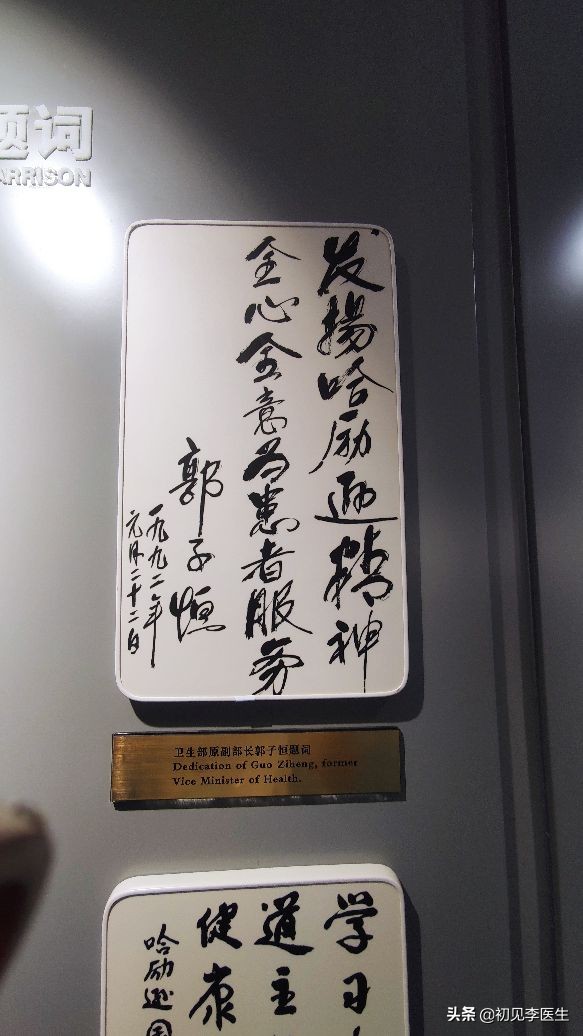 题词
ARRISON
发揚哈励逊精神
全心全意为患者服务
郭子恒
一九九二年
元月二十二日
卫生部原副部长郭子恒题词
Dedication of Guo Ziheng, former
Vice Minister of Health.
学习
道主
健康
哈励逊国
头条 @初见李医生